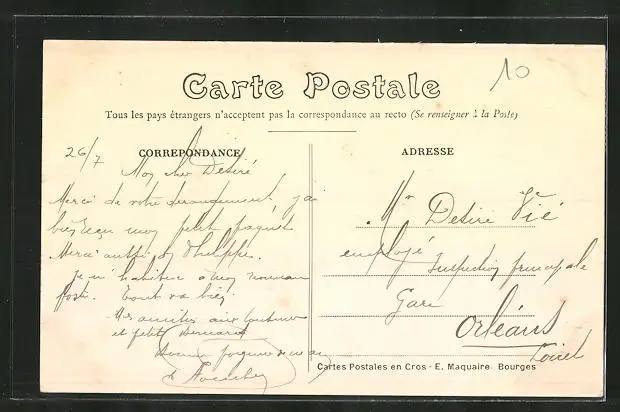 10
Carte Postale
Tous les pays étrangers n'acceptent pas la correspondance au recto (Se renseigner à la Poste)
26/7
CORREPONDANCE
ADRESSE
Mon cher Desiré
Merci de votre derangement j'ai
bien reçu mon petit paquet
Merci aussi à Philippe.
je m'habitue à mon nouveau
poste. Tout va bien.
Mes amitiés aux
et petit Bernard
Mr Desiré Vié
employé
Inspection principale
Gare
Orléans
Loiret
Cartes Postales en Gros - E. Maquaire. Bourges